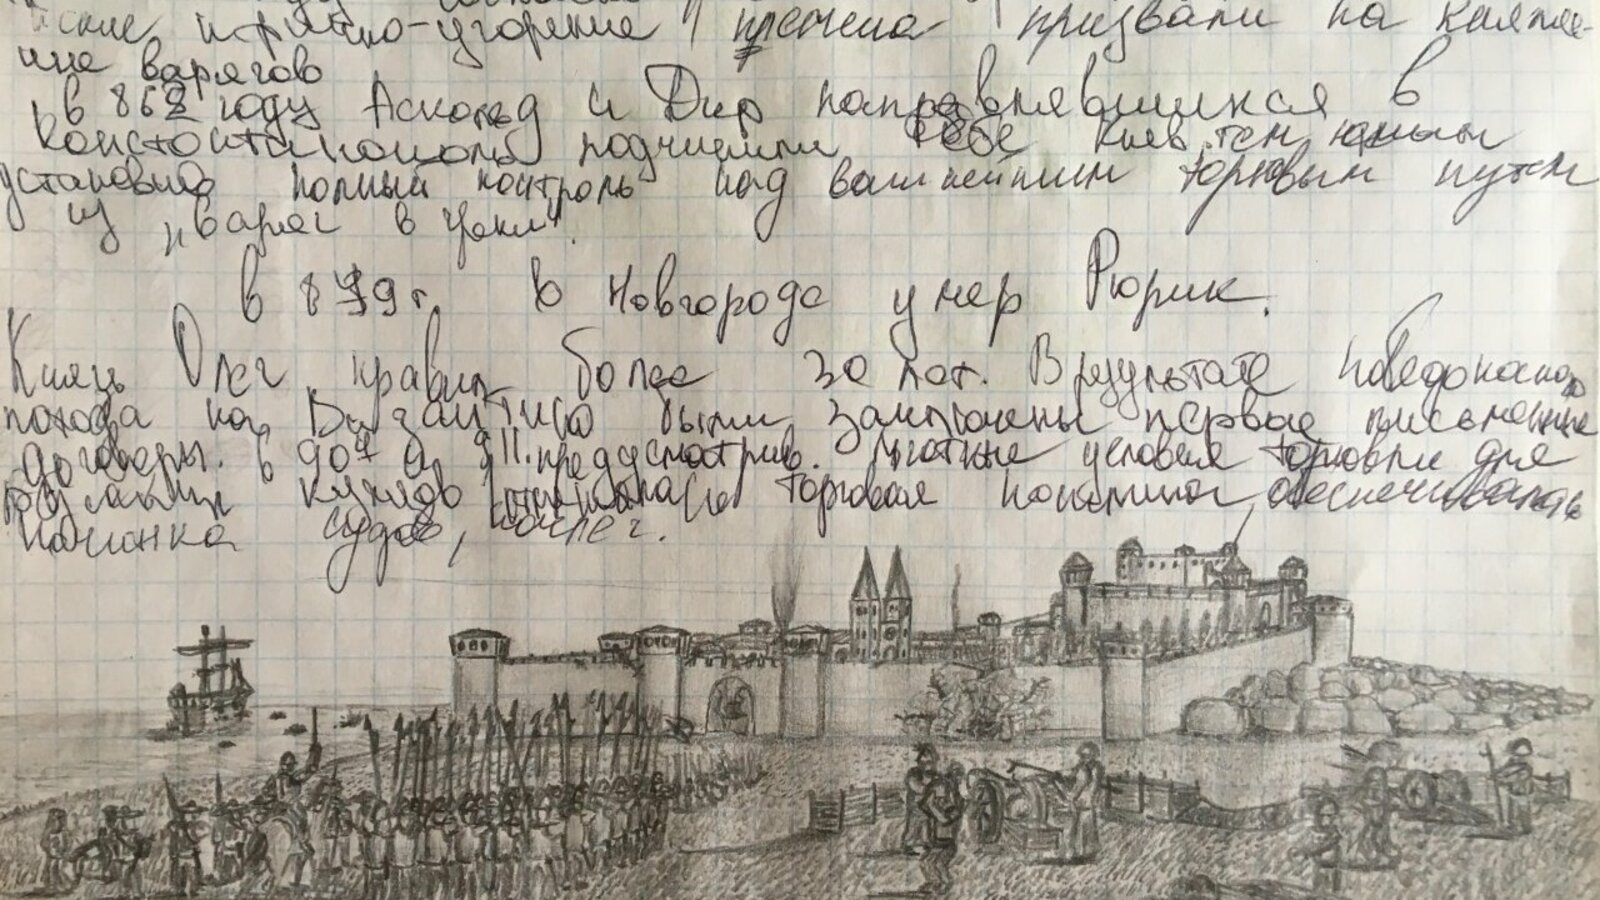 и финно-угорские племена призвали на княже-
ние варягов
в 862 году Аскольд и Дир направлявшихся в
Константинополь подчинили себе Киев тем самым
установив полный контроль над важнейшим торговым путем
из "варяг в греки".
в 879г. в Новгороде умер Рюрик.
Князь Олег правил более 30 лет. В результате победоносного
похода на Византию были заключены первые письменные
договоры. в 907 и 911. предусмотрив. льготные условия торговли для
купцов торговая пошлина обеспечивалась
починка судов, ночлег.